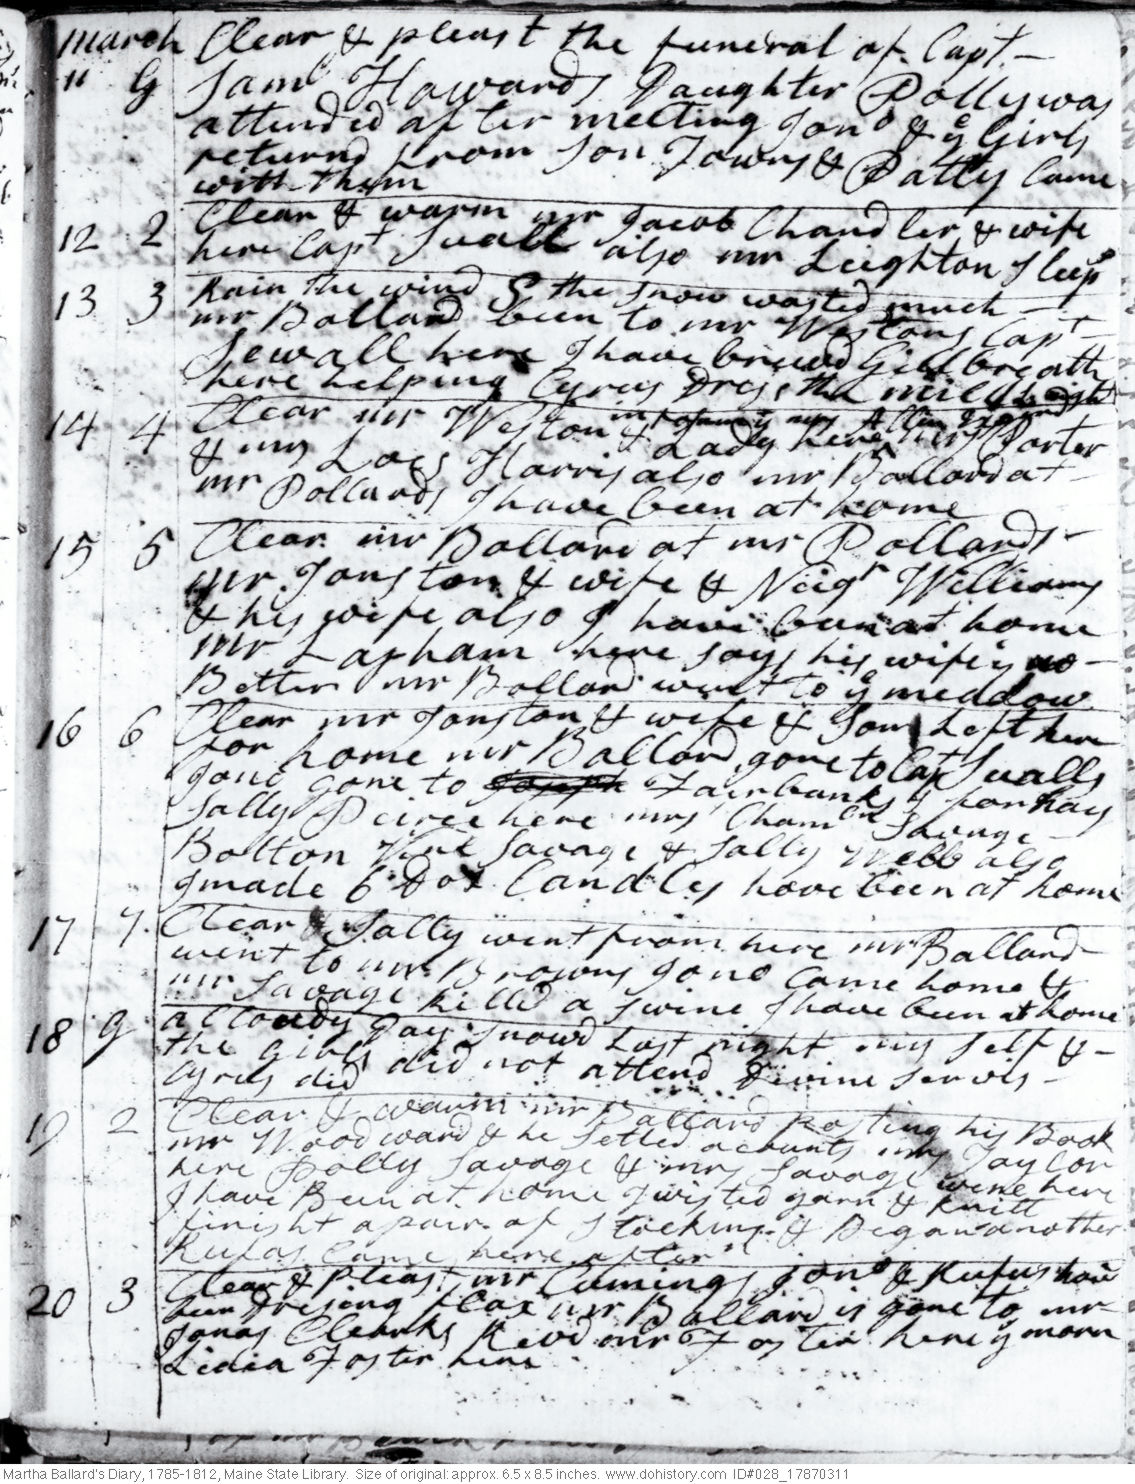 March Clear & pleast the funeral of Capt. -
11 G Saml Howards Daughter Polly was
attended after meeting Jono & ye Girls
returnd from Son Towns & Patty Came
with them
12 2 Clear & warm mr Jacob Chandler & wife
here Capt Suall also mr Leighton sleep
13 3 Rain the wind S the snow wasted much -
mr Ballard been to mr Westons Capt -
Sewall here I have brewd Gillbreath
here helping Cyrus Dress the mill
14 4 Clear mr Weston & Lady here mr Porter
& mrs Harris also mr Ballard at -
mr Pollards I have been at home
15 5 Clear mr Ballard at mr Pollards -
mr Jonston & wife & Williams
& his wife also I have been at home
mr Lapham here says his wife is no -
Better mr Ballard went to ye meddow
16 6 Clear mr Jonston & wife & Son Left here
for home mr Ballard gone to Capt Sualls
Jono gone to Fairbanks for hay
Sally Peirce here mrs Chambn Savage -
Bolton Savage & Sally Webb also
I made 6 Doz Candles have been at home
17 7 Clear Sally went from here mr Ballard -
went to mr Browns Jono came home &
mr Savage killed a swine I have been at home
18 G a Cloudy Day Snowd Last night my self & -
the girls did not attend Divine Servis -
Cyrus did
19 2 Clear & warm mr Ballard Posting his Book
mr Woodward & he Setled accounts mrs Taylor
here Polly Savage & mrs Savage were here
I have Been at home twisted yarn & knitt
finisht a pair of Stockings & Began another
Rufas Came here aftern
20 3 Clear & Pleast mr Cumings Jono & Rufus have
been Dresing flax mr Ballard is gone to mr
Jonas Clearks Revd mr Foster here ye morn
Lidia Foster here
Martha Ballard's Diary, 1785-1812, Maine State Library. Size of original: approx. 6.5 x 8.5 inches. www.dohistory.com ID#028_17870311